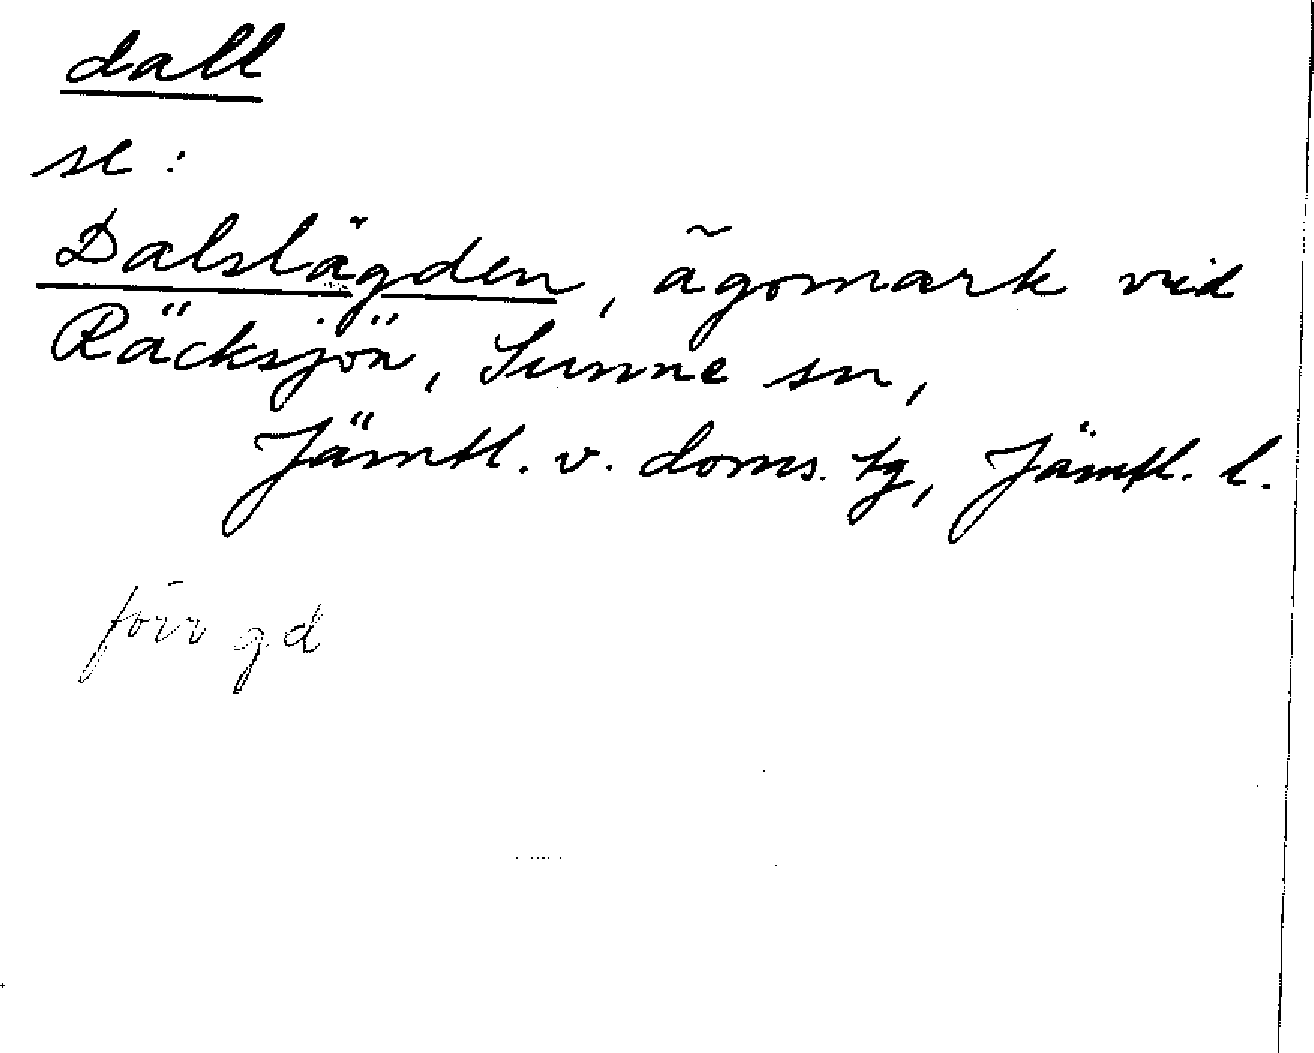 dall
se:
Dalslägden, ägomark vid
Räcksjön, Sunne sn,
Jämtl. v. doms. tg, Jämtl. l.
förr gd